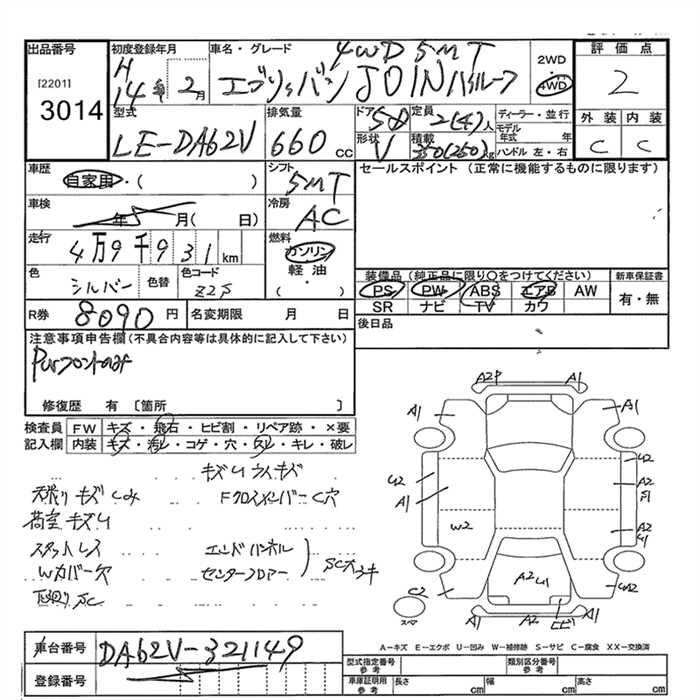 出品番号 初度登録年月 車名・グレード 4WD 5MT 2WD 評価点
[2201] H14年2月 エブリィバン JOIN ハイルーフ 4WD 2
3014
型式 排気量 ドア 5D 定員 2(4)人 ディーラー・並行 外装 内装
LE-DA62V 660cc 形状 V 積載 350(250)kg モデル年式 年 ハンドル 左・右 C C
車歴 自家用・( ) シフト 5MT セールスポイント (正常に機能するものに限ります)
車検 年 月( 日) 冷房 AC
走行 4万9千931km 燃料 ガソリン 軽油 ( ・ )
色 シルバー 色替 色コード Z2S 装備品 (純正品に限り○をつけてください) 新車保証書
PS PW ABS エアB AW 有・無
SR ナビ TV カワ
R券 8090円 名変期限 月 日 後日品
注意事項申告欄(不具合内容等は具体的に記入して下さい)
PWフロントのみ
修復歴 有 [箇所 ]
検査員 FW キズ・飛石・ヒビ割・リペア跡・×要
記入欄 内装 キズ・汚レ・コゲ・穴・スレ・キレ・破レ
キズU ウスキズ
天張り キズ しみ Fクロスメンバー C穴
荷室 キズU
スタットレス エンドパネル
Wカバー欠 センターフロアー SC大サキ
下廻り SC
A2P A1
A1 A1
U2
A1 A2
W2 A2
U1
C2 A2 U1 U2
スペア ヒビ
A-キズ E-エクボ U-凹み W-補修跡 S-サビ C-腐食 XX-交換済
車台番号 DA62V-321149 型式指定番号 参考 類別区分番号 参考
登録番号 車庫証明用 参考 長さ cm 幅 cm 高さ cm